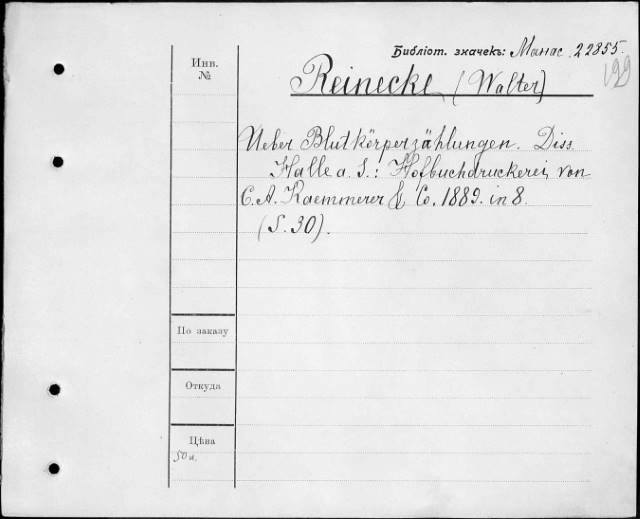 Библіот. значекъ: Манас. 22855.
199
Инв.
№
Reinecke, (Walter)
Ueber Blutkörperzählungen. Diss.
Halle a. S.: Hofbuchdruckerei von
C. A. Kaemmerer & Co. 1889. in 8.
(S. 30).
По заказу
Откуда
Цѣна
50 к.